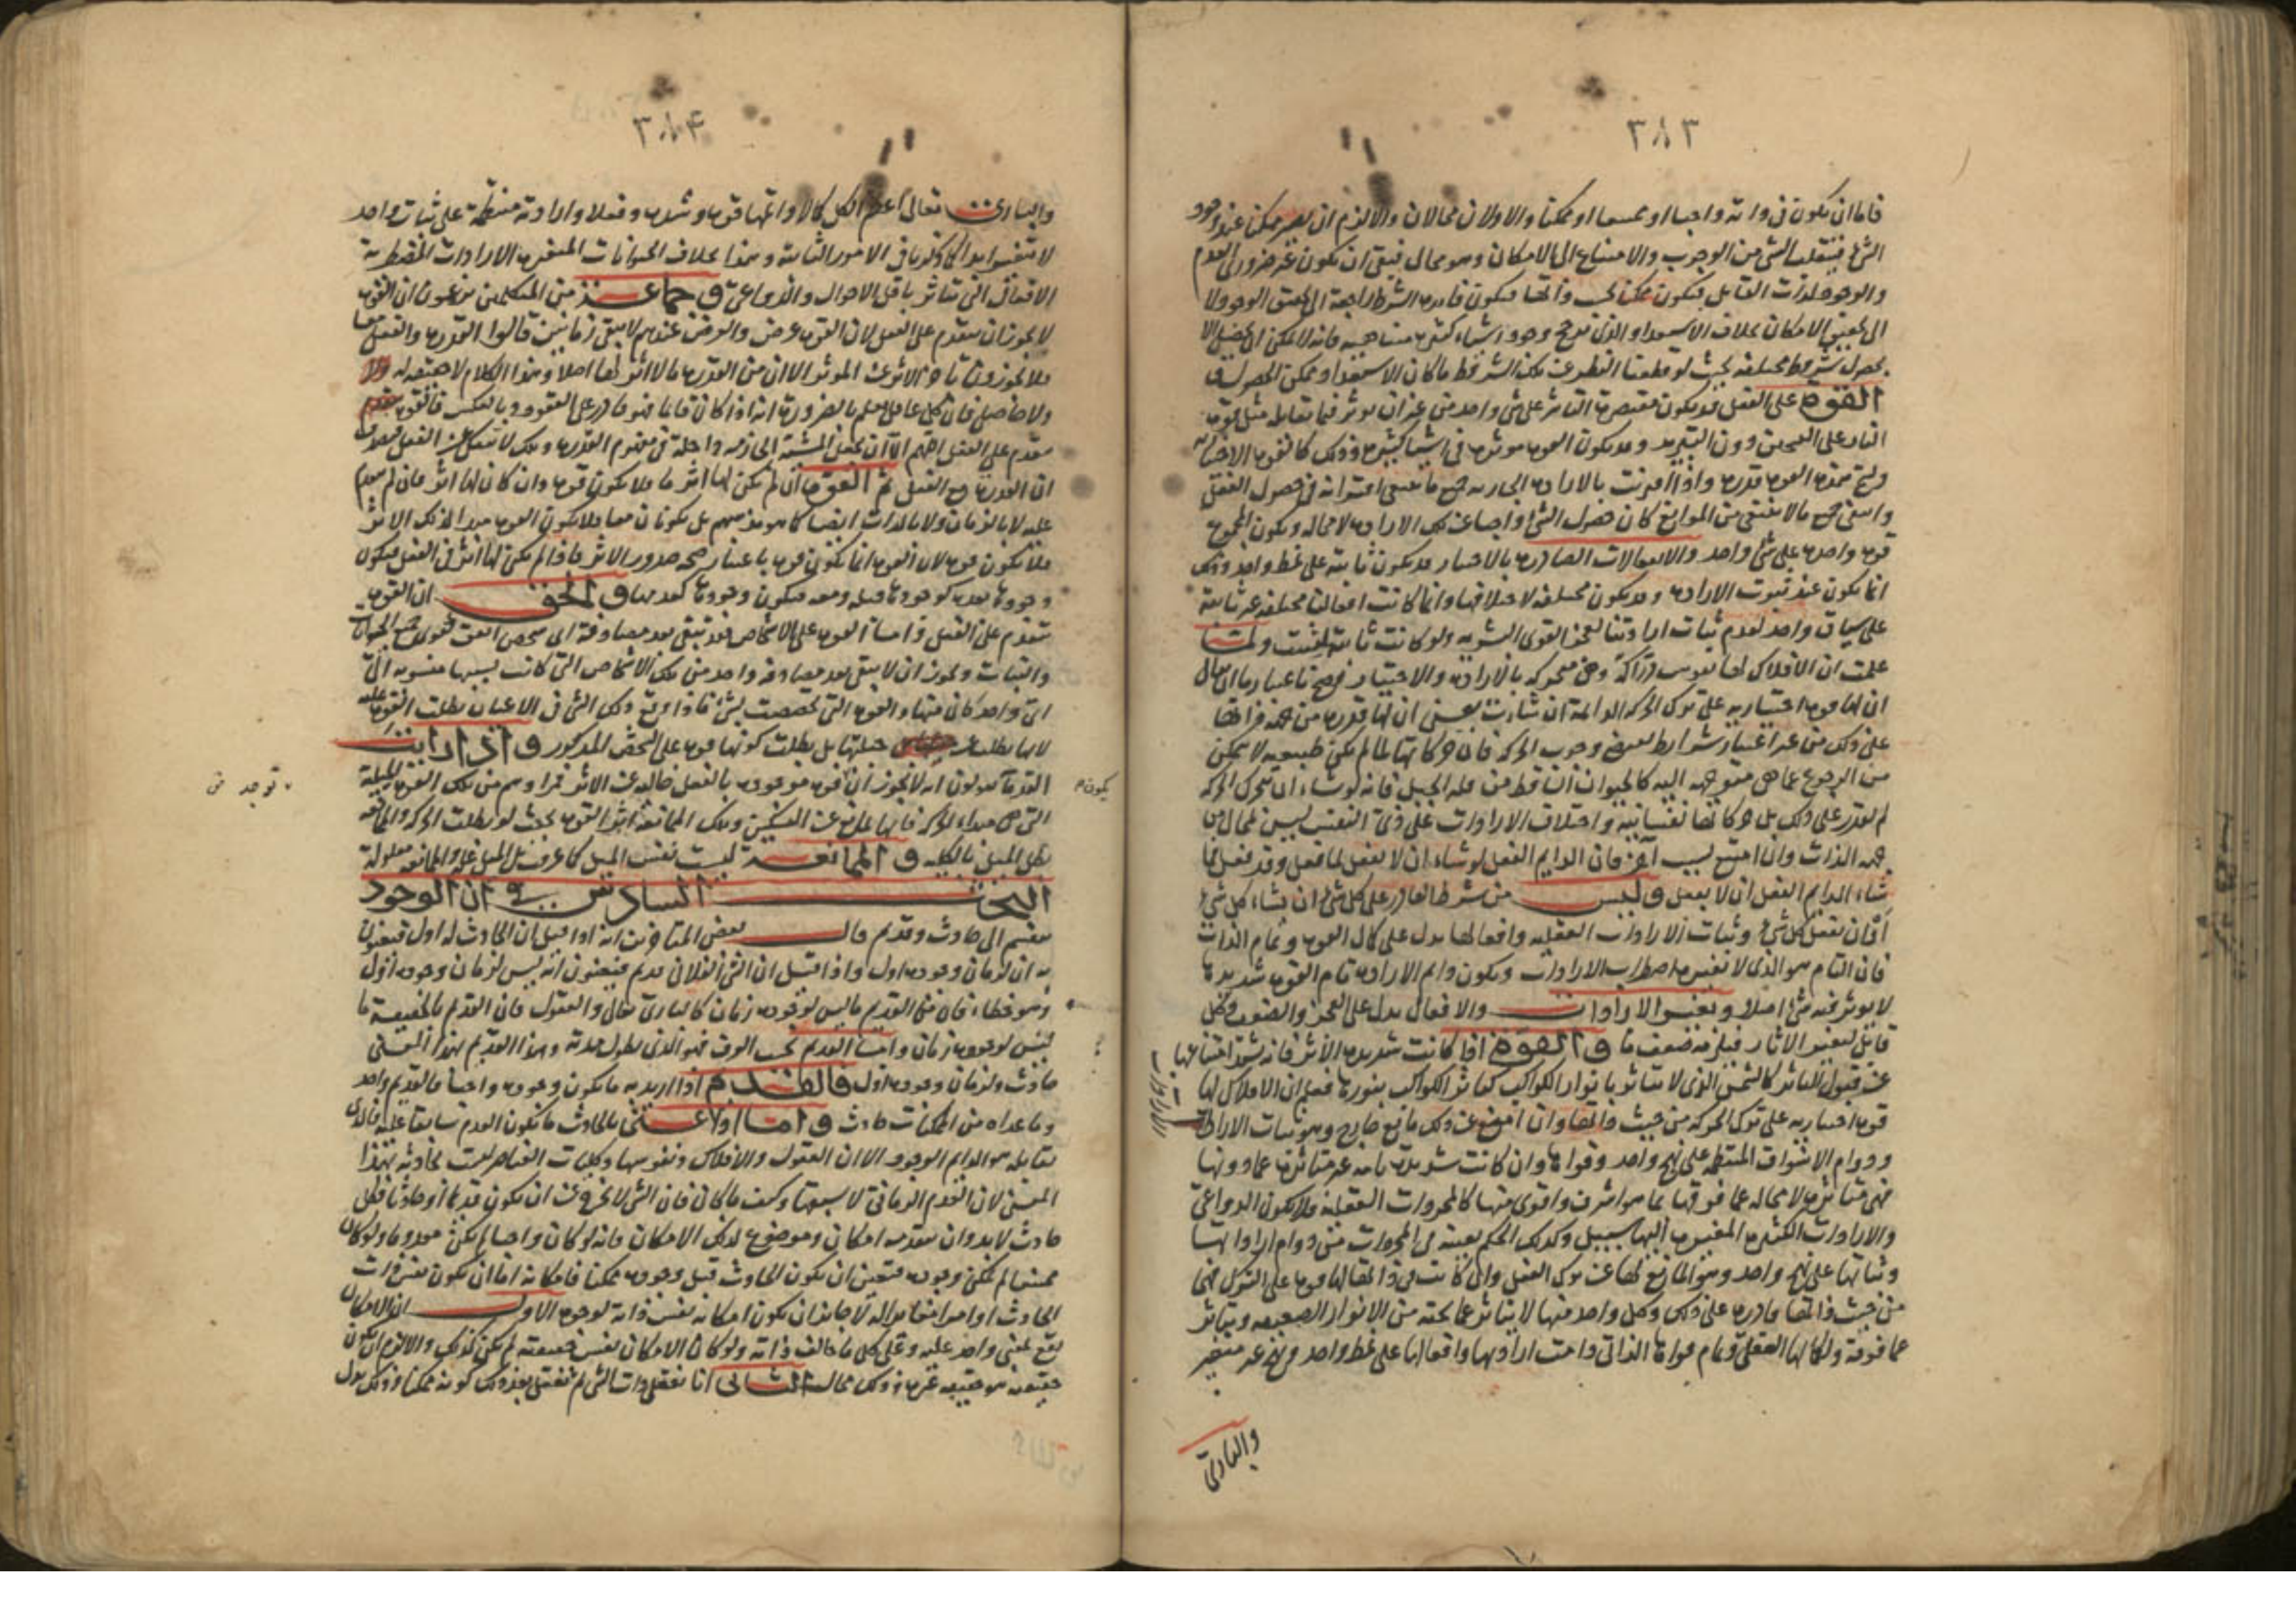 ٣٨٣
فاما ان يكون في ذاته واجبا او ممتنعا او ممكنا والاولان محالان والا لزم ان يصير ممكنا عند وجود
الشرط فينقلب الشئ من الوجوب والامتناع الى الامكان وهو محال فبقى ان يكون غير ضرورى العدم
والوجود لذات القابل فيكون ممكنا بحسب ذاتها فيكون فايدة الشرط راجعة الى تحقق الوجود لا
الى تحقيق الامكان بخلاف الاستعداد الذى هو وجود اشياء كثيرة متناهية فانه لا يمكن ان يحصل الا
بحصول شروط مختلفة بحيث لو قطعنا النظر عن تلك الشروط ما كان الاستعداد ممكن الحصول و
القوة على الفعل قد يكون مقتصرة التأثير على شئ واحد من غير ان يوثر فيما يقابله مثل قوة
النار على التسخين دون التبريد وقد يكون القوة موثرة في اشيا كثيرة وذلك كالقوة الاختيارية
وتسمى هذه القوة قدرة واذا اقترنت بالارادة الجازمة مع ما ينبغى اقترانه في حصول الفعل
وانتفى جميع ما لا ينبغى من الموانع كان حصول الشئ واجبا عن تلك الارادة لا محاله ويكون المجموع
قوة واحدة على شئ واحد والافعال الصادرة بالاختيار قد يكون ثابتة على نمط واحد وذلك
انما يكون عند ثبوت الارادة وقد يكون مختلفة لاختلافها وانما كانت افعالنا مختلفة غير ثابتة
على سياق واحد لعدم ثبات ارادتنا لعجز القوى البشرية ولو كانت ثابتة لثبتت ولما
علمت ان الافلاك لها نفوس درّاكة وهى متحركة بالارادة والاختيار فيصح باعتبار ما ان يقال
ان لها قوة اختيارية على ترك الحركة الدائمة ان شاءت بمعنى ان لها قدرة من جهة ذاتها
على ذلك من غير اعتبار شرايط وجوب الحركة فان حركاتها لما لم يكن طبيعية لا يمكن
من الرجوع عما هى متوجهة اليه كالحيوان الساقط من قلة الجبل فانه لو شاء ان يترك الحركة
لم يقدر على ذلك بل حركاتها نفسانية واختلاف الارادات على ذى النفس ليس بمحال من
جهة الذات وان امتنع بسبب آخر فان الدايم الفعل لو شاء ان لا يفعل لما فعل وقد فعل فما
شاء الدايم الفعل ان لا يفعل وليس من شرط القادر على كل شئ ان يشاء كل شئ
او ان يفعل كل شئ وثبات الارادات العقلية وافعالها يدل على كمال القوة وتمام الذات
فان التام هو الذى لا يتغير باضطراب الارادات ويكون دايم الارادة تام القوة شديدة
لا يوثر فيه شئ اصلا وتغير الارادات والافعال يدل على العجز والضعف وكل
قابل لتغير الاثار فيلزمه ضعف ما والقوة اذا كانت شديدة الاثر فانه يشتد امتناعها
عن قبول التاثر كالشمس الذى لا يتاثر بانوار الكواكب كتاثر الكواكب بنورها فعلم ان الافلاك لها
قوة اختيارية على ترك الحركة من حيث ذاتها وان امتنع عن ذلك مانع خارج وهو ثبات الارادة
ودوام الاشواق المنتظمة على نهج واحد وقواها وان كانت شديدة تامة غير متاثرة عما دونها
فهى متاثرة لا محاله عما فوقها مما هو اشرف واقوى منها كالمجردات العقلية فلا يكون الدواعى
والارادات الكثيرة المتغيرة اليها سبيل وكذلك الحكم بعينه في المجردات من دوام اراداتها
وثباتها على نهج واحد وهو المانع لها عن ترك الفعل وان كانت في ذاتها لها قوة على الترك فهى
من حيث ذاتها قادرة على ذلك وكل واحد منها لا يتاثر عما تحته من الانوار الضعيفة ويتاثر
عما فوقه ولكمالها العقلى وتمام قواها الذاتى دامت ارادتها وافعالها على نمط واحد ونهج غير متغير
والبارى
٣٨۴
والبارى تعالى اعظم الكل كمالا واتمها قوة وشدة وفعلا وارادته منتظمة على ثبات واحد
لا تتغير ابدا لكونها في الامور الثابتة وهذا بخلاف الحيوانات المتغيرة الارادات المضطربة
الافعال التى تتاثر باقل الاحوال والدواعى وجماعة من المتكلمين يزعمون ان القوة
لا يجوز ان يتقدم على الفعل لان القوة عرض والعرض عندهم لا يبقى زمانين قالوا القدرة والفعل معا
فلا يجوز ان يتاخر الاثر عن الموثر الا ان من القدرة ما لا اثر لها اصلا وهذا الكلام لا حقيقة له
ولا حاصل فان كل عاقل يعلم بالضرورة انه اذا كان قايما فهو قادر على القعود وبالعكس فالقوة
متقدم على الفعل اللهم الا ان يجعل المشية الجازمة داخلة في مفهوم القدرة وتلك لا تنفك عن الفعل فيصدق
ان القدرة مع الفعل ثم القوة ان لم يكن لها اثر ما فلا يكون قوة وان كان لها اثر فان لم يتقدم
عليه لا بالزمان ولا بالذات ايضا كما هو مذهبهم بل يكونان معا فلا يكون القوة مبدا لذلك الاثر
فلا يكون قوة لان القوة انما يكون قوة باعتبار صحة صدور الاثر فاذا لم يكن لها اثر في الفعل فيكون
وجودها بعده كوجودها قبله ومعه فيكون وجودها كعدمها والحق ان القوة
يتقدم على الفعل واما القوة على الاشخاص فقد تبقى بعد مصادفة اى شخص اتفق كقوى الحيوان
والنبات ويجوز ان لا يبقى بعد مصادفة واحد من تلك الاشخاص التى كانت بسببها منسوبة الى
اى واحد كان منها والقوة التى تخصصت بشئ فاذا وقع ذلك الشئ في الاعيان بطلت القوة عليه
لا بما بطلت جملتها بل بطلت كونها قوة على الشخص المذكور واذا رايت
القدماء يقولون انه لا يجوز ان قوة موجودة بالفعل خالية عن الاثر فمرادهم من تلك القوة الميلية
التى هى مبداء الحركة فانها تمانع عن التسكين وتلك الممانعة اثر القوة بحيث لو بطلت الحركة والممانعة
بطل الميل بالكلية والممانعة ليست نفس الميل كما عرفت بل الميل علة والممانعة معلولة
البحث السادس في ان الوجود
ينقسم الى حادث وقديم قال بعض المتاخرين انه اذا قيل ان الحادث له اول فيعنون
به ان لزمان وجوده اول واذا قيل ان الشئ الفلانى قديم فيعنون انه ليس لزمان وجوده اول
وهو خطاء فان من القديم ما ليس لوجوده زمان كالبارى تعالى والعقول فان القديم بالحقيقة ما
ليس لوجوده زمان واما القديم بحسب العرف فهو الذى يطول مدته وهذا القديم بهذا المعنى
حادث ولزمان وجوده اول فالقديم اذا اريد به ما يكون وجوده واجبا فالقديم واحد
وما عداه من الممكنات حادث واما اولا عنى بالحادث ما يكون العدم سابقا عليه فالذى
يقابله هو الدايم الوجود الا ان العقول والافلاك ونفوسها وكليات العناصر ليست بحادثة بهذا
المعنى لان العدم الزمانى لا يسبقها وكيف ما كان فان الشئ لا يخرج عن ان يكون قديما او حادثا فكل
حادث لا بد وان يتقدمه امكان وموضوع لذلك الامكان فانه لو كان واجبا لم يكن معدوما ولو كان
ممتنعا لم يمكن وجوده فتعين ان يكون الحادث قبل وجوده ممكنا فامكانه اما ان يكون نفس ذات
الحادث او امرا مغايرا له لا جائز ان يكون امكانه نفس ذاته لوجوه الاول ان الامكان
يقع بمعنى واحد عليه وعلى كل ما خالف ذاته ولو كان الامكان نفس حقيقته لم يكن كذلك والا لزم ان يكون
حقيقته هو حقيقة غيره وذلك محال الثانى انا نعقل ذات الشئ ثم نعقل بعد ذلك كونه ممكنا وذلك يدل
يكون
توجد في